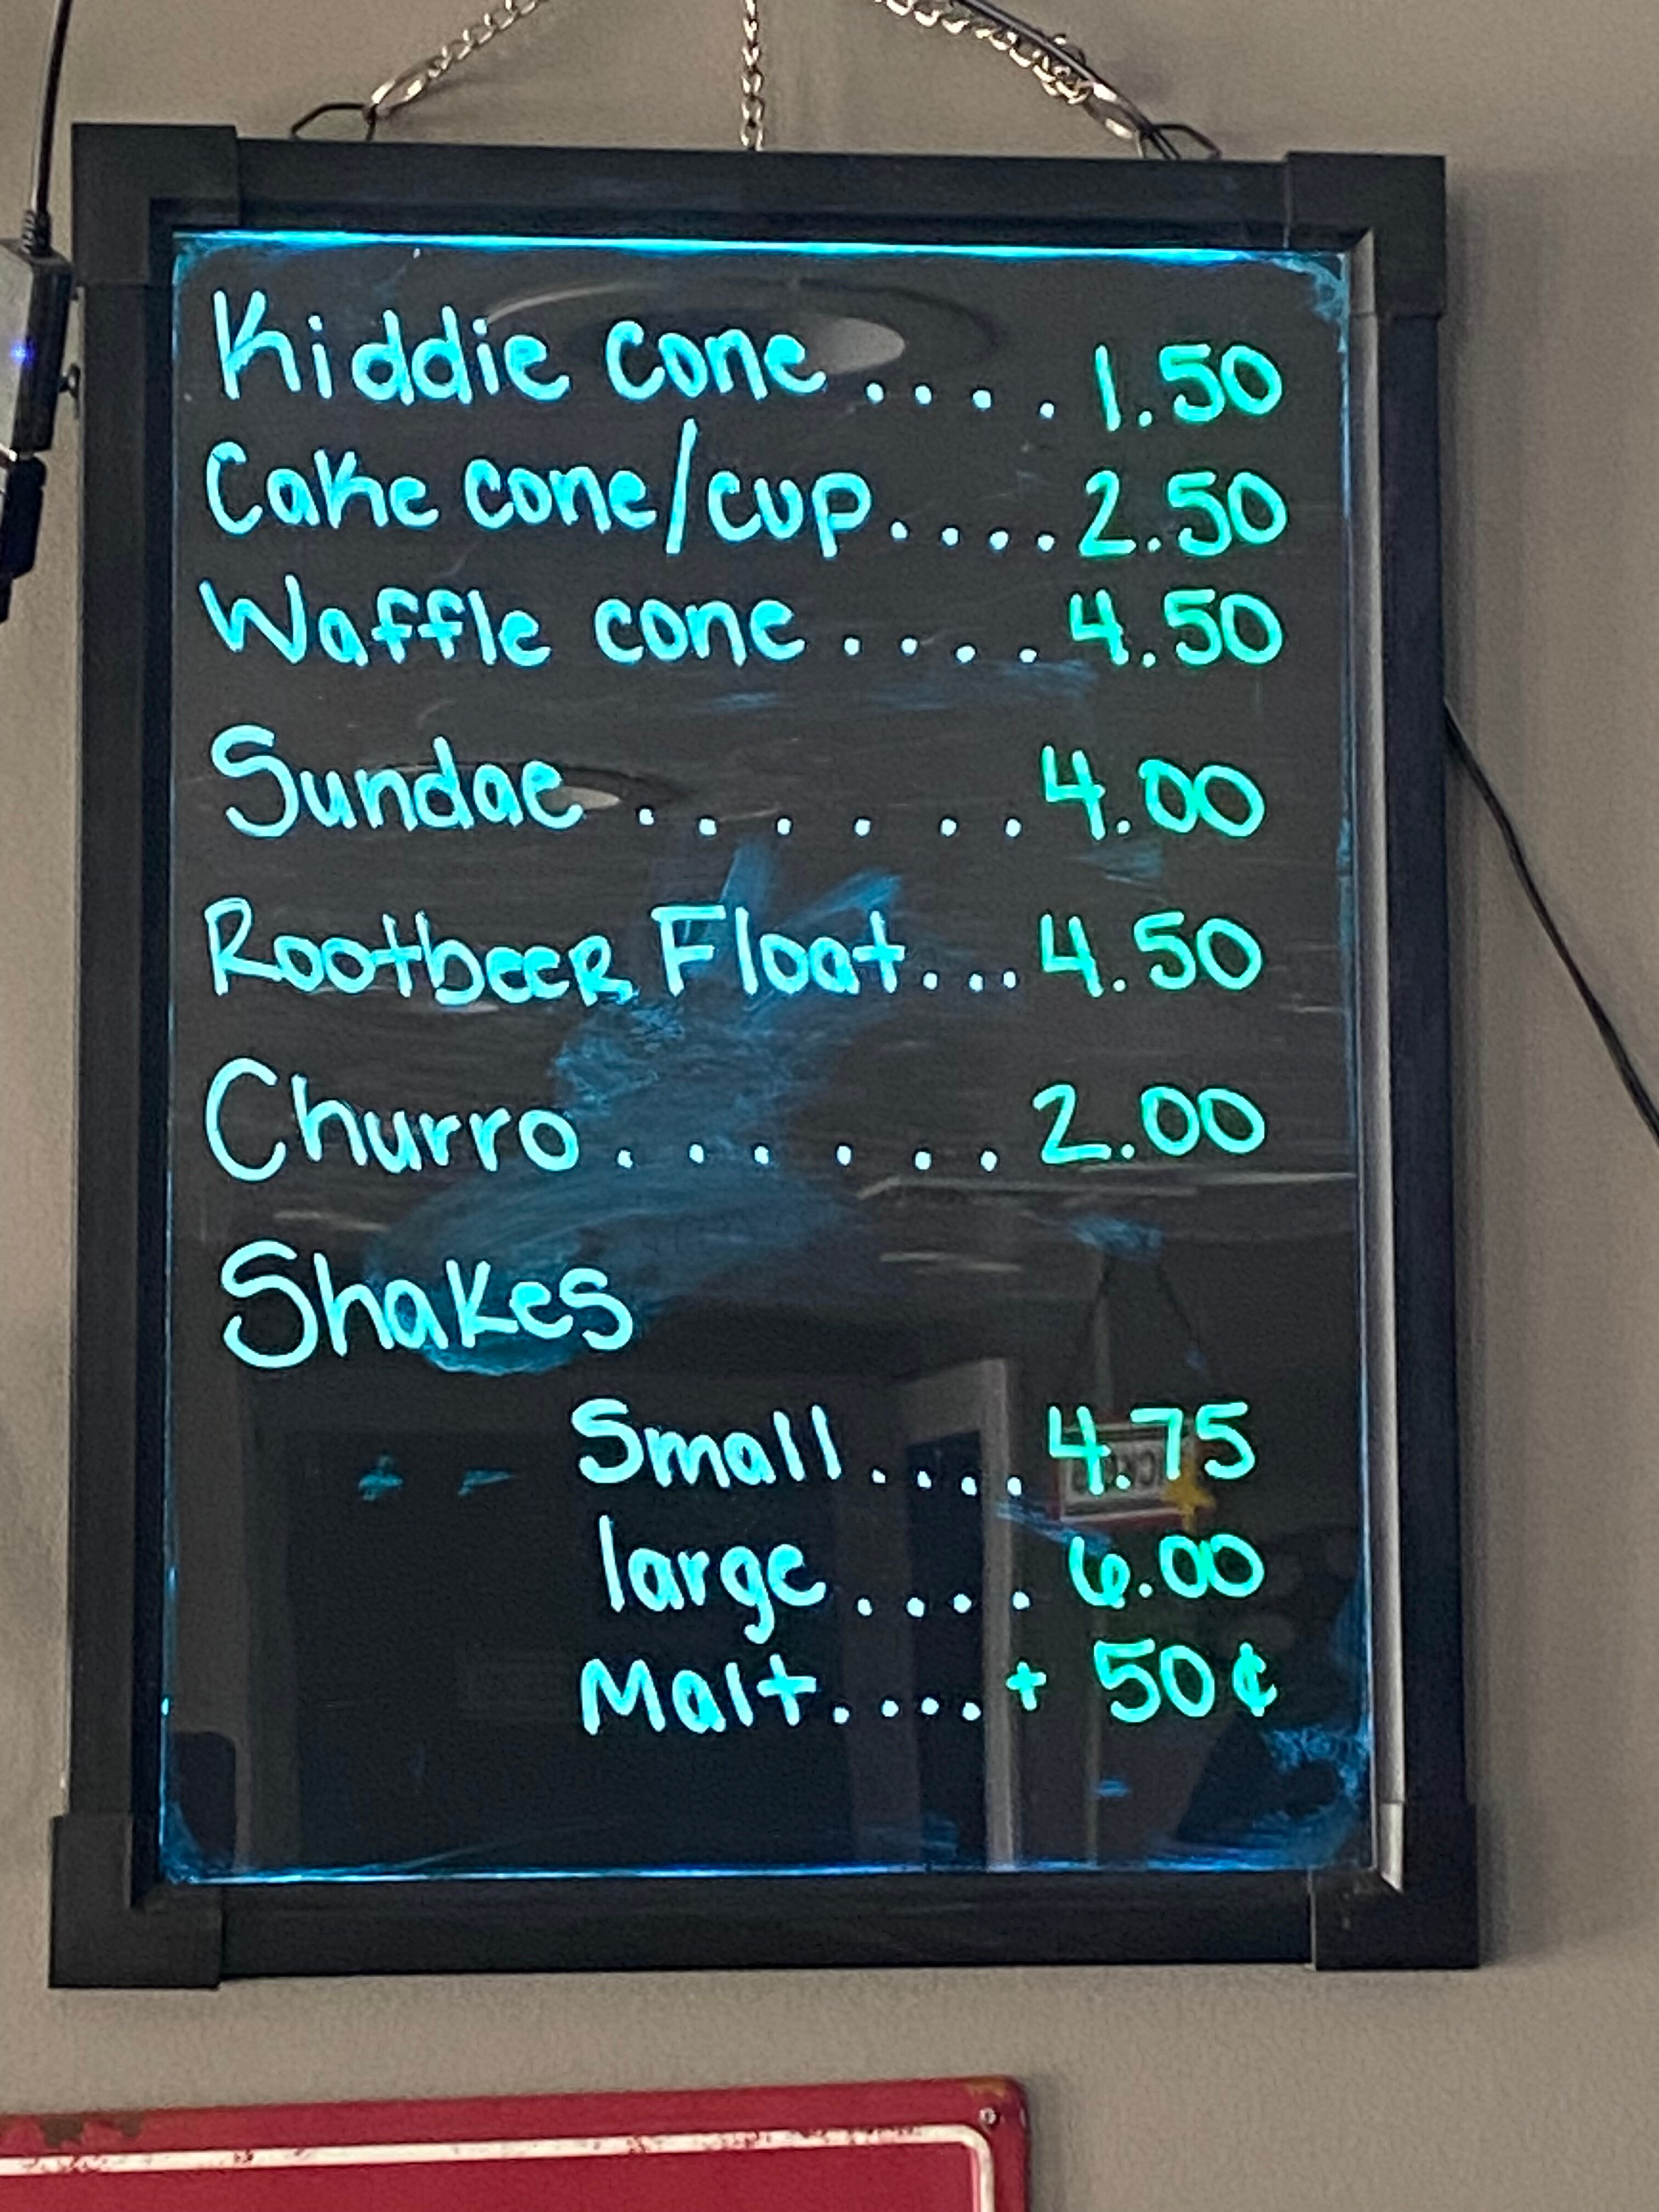 Kiddie cone .... 1.50
Cake cone/cup .... 2.50
Waffle cone .... 4.50
Sundae ...... 4.00
Rootbeer Float ... 4.50
Churro ...... 2.00
Shakes
Small .... 4.75
large .... 6.00
Malt .... + 50¢